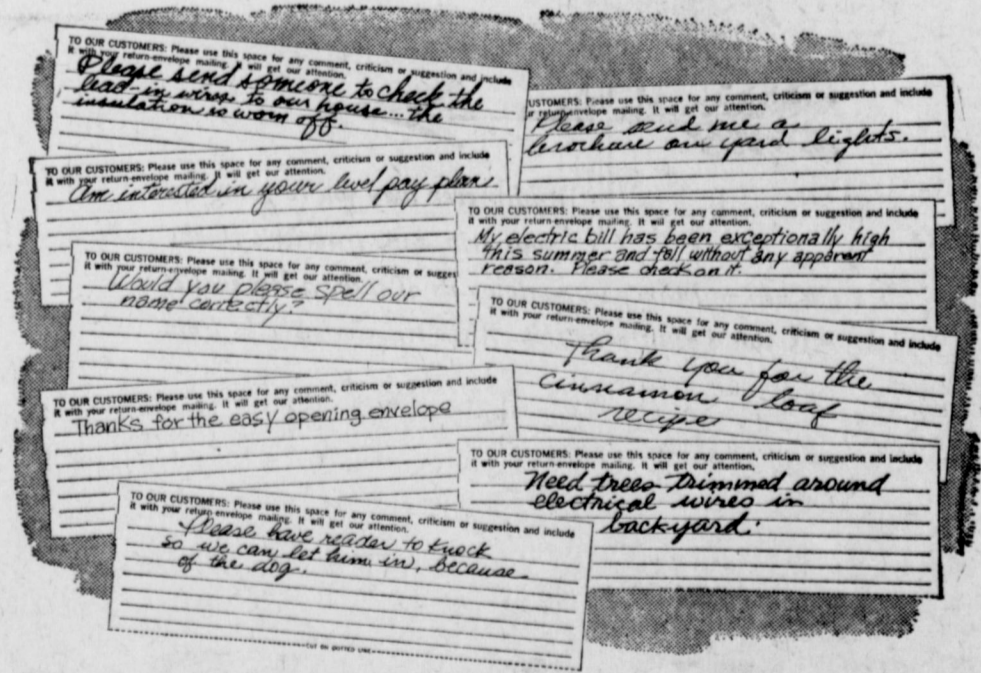 TO OUR CUSTOMERS: Please use this space for any comment, criticism or suggestion and include
it with your return-envelope mailing. It will get our attention.
Please send someone to check the
lead-in wires to our house... the
insulation so worn off.
USTOMERS: Please use this space for any comment, criticism or suggestion and include
r return-envelope mailing. It will get our attention.
Please send me a
brochure on yard lights.
TO OUR CUSTOMERS: Please use this space for any comment, criticism or suggestion and include
it with your return-envelope mailing. It will get our attention.
Am interested in your level pay plan.
TO OUR CUSTOMERS: Please use this space for any comment, criticism or suggestion and include
it with your return-envelope mailing. It will get our attention.
My electric bill has been exceptionally high
this summer and fall without any apparent
reason. Please check on it.
TO OUR CUSTOMERS: Please use this space for any comment, criticism or sugges
it with your return-envelope mailing. It will get our attention.
Would you please spell our
name correctly?
TO OUR CUSTOMERS: Please use this space for any comment, criticism or suggestion and include
it with your return-envelope mailing. It will get our attention.
Thank you for the
cinnamon loaf
recipe
TO OUR CUSTOMERS: Please use this space for any comment, criticism or suggestion and include
it with your return-envelope mailing. It will get our attention.
Thanks for the easy opening envelope
TO OUR CUSTOMERS: Please use this space for any comment, criticism or suggestion and include
it with your return-envelope mailing. It will get our attention.
Need trees trimmed around
electrical wires in
backyard.
TO OUR CUSTOMERS: Please use this space for any comment, criticism or suggestion and include
it with your return-envelope mailing. It will get our attention.
Please have reader to knock
so we can let him in, because
of the dog.
CUT ON DOTTED LINE